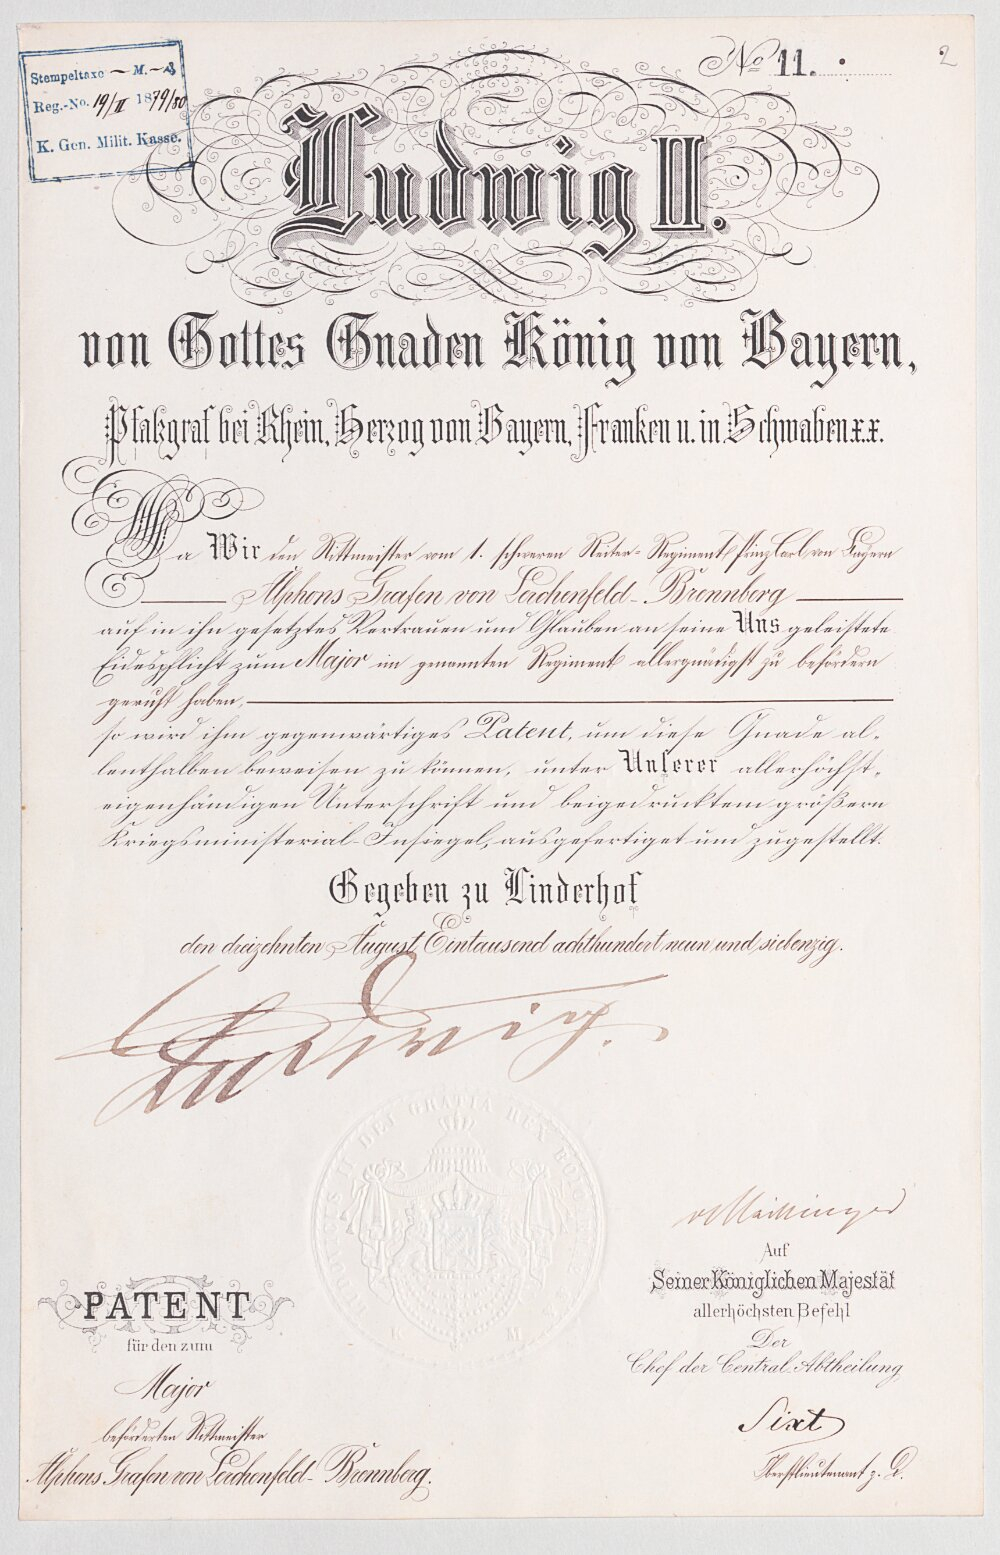 Stempeltaxe — M. — ₰
Reg.-No. 19/II 1879/80
K. Gen. Milit. Kasse.
No 11.
2
Ludwig II.
von Gottes Gnaden König von Bayern,
Pfalzgraf bei Rhein, Herzog von Bayern, Franken u. in Schwaben x.x.
Da Wir den Rittmeister vom 1. schweren Reiter-Regiment Prinz Carl von Bayern
Alphons Grafen von Lerchenfeld-Brennberg
auf in ihn gesetztes Vertrauen und Glauben an seine Uns geleistete
Eidespflicht zum Major im genannten Regiment allergnädigst zu befördern
geruht haben,
so wird ihm gegenwärtiges Patent, um diese Gnade al-
lenthalben beweisen zu können, unter Unserer allerhöchst-
eigenhändigen Unterschrift und beigedrucktem größern
Kriegsministerial-Insiegel, ausgefertiget und zugestellt.
Gegeben zu Linderhof
den dreizehnten August Eintausend achthundert neun und siebenzig.
Ludwig.
LUDOVICUS II DEI GRATIA REX BOIO
K M
v Maillinger
Auf
Seiner Königlichen Majestät
allerhöchsten Befehl
Der
Chef der Central-Abtheilung
Sixt
Oberstlieutenant z. D.
PATENT
für den zum
Major
beförderten Rittmeister
Alphons Grafen von Lerchenfeld-Brennberg.